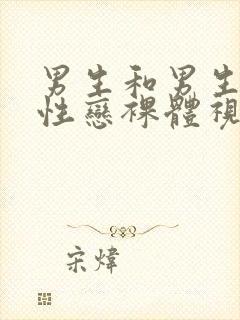 男生和男生
性戀裸體視
宋煒